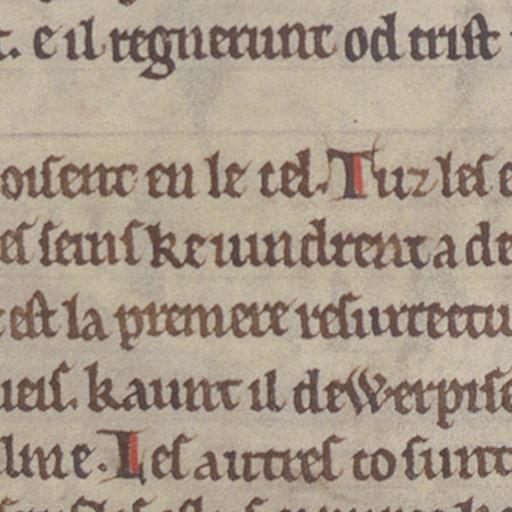 t. e il regnerunt od crist
oisent en le cel. Tuz les e
es seins ke uindrent a de
est la premere resurrectiu
ueis. kaunt il dewerpise
lme. Les autres co sunt